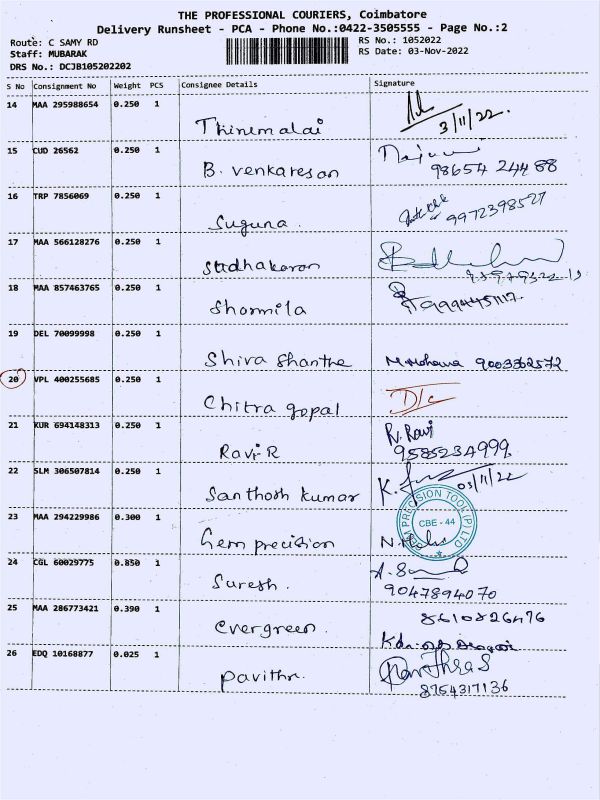 THE PROFESSIONAL COURIERS, Coimbatore
Delivery Runsheet - PCA - Phone No.:0422-3505555 - Page No.:2
Route: C SAMY RD RS No.: 1052022
Staff: MUBARAK RS Date: 03-Nov-2022
DRS No.: DCJB105202202
S No Consignment No Weight PCS Consignee Details Signature
14 MAA 295988654 0.250 1 Thirumalai 3/11/22.
15 CUD 26562 0.250 1 B. venkatesan 98654 24488
16 TRP 7856069 0.250 1 Suguna. 9972398527
17 MAA 566128276 0.250 1 Sudhakaran
18 MAA 857463765 0.250 1 Sharmila
19 DEL 70099998 0.250 1 Shiva Shanthe M. Mohana 9003362572
20 VPL 400255685 0.250 1 Chitra gopal D/c
21 KUR 694148313 0.250 1 Ravi R R. Ravi
9585234999
22 SLM 306507814 0.250 1 Santhosh kumar 03/11/22
23 MAA 294229986 0.300 1 Gem precision
GEM PRECISION TOOL (P) LTD
CBE - 44
24 CGL 60029775 0.850 1 Suresh.
9047894070
25 MAA 286773421 0.390 1 Evergreen. 8610826476
26 EDQ 10168877 0.025 1 Pavithr. Pavithra S
8754317136